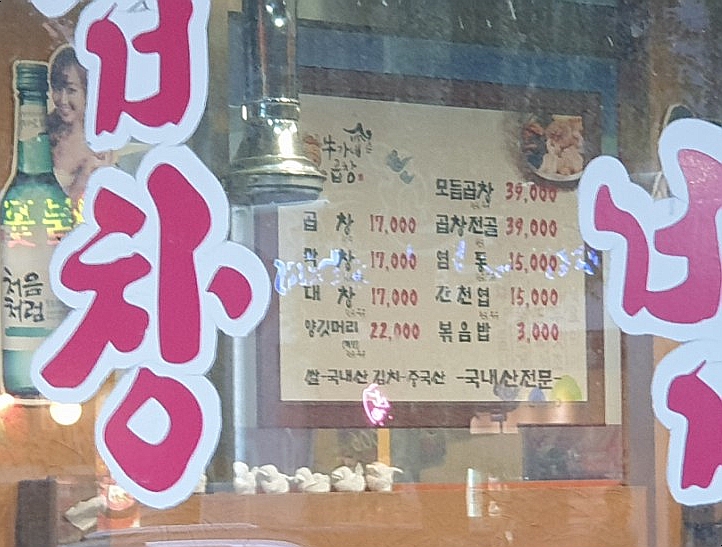 곱
창
처음
처럼
牛가네
곱창
모듬곱창 39,000
곱 창 17,000
곱창전골 39,000
막 창 17,000
염 통 15,000
대 창 17,000
간천엽 15,000
양깃머리 22,000
볶음밥 3,000
쌀-국내산 김치-중국산 -국내산전문-